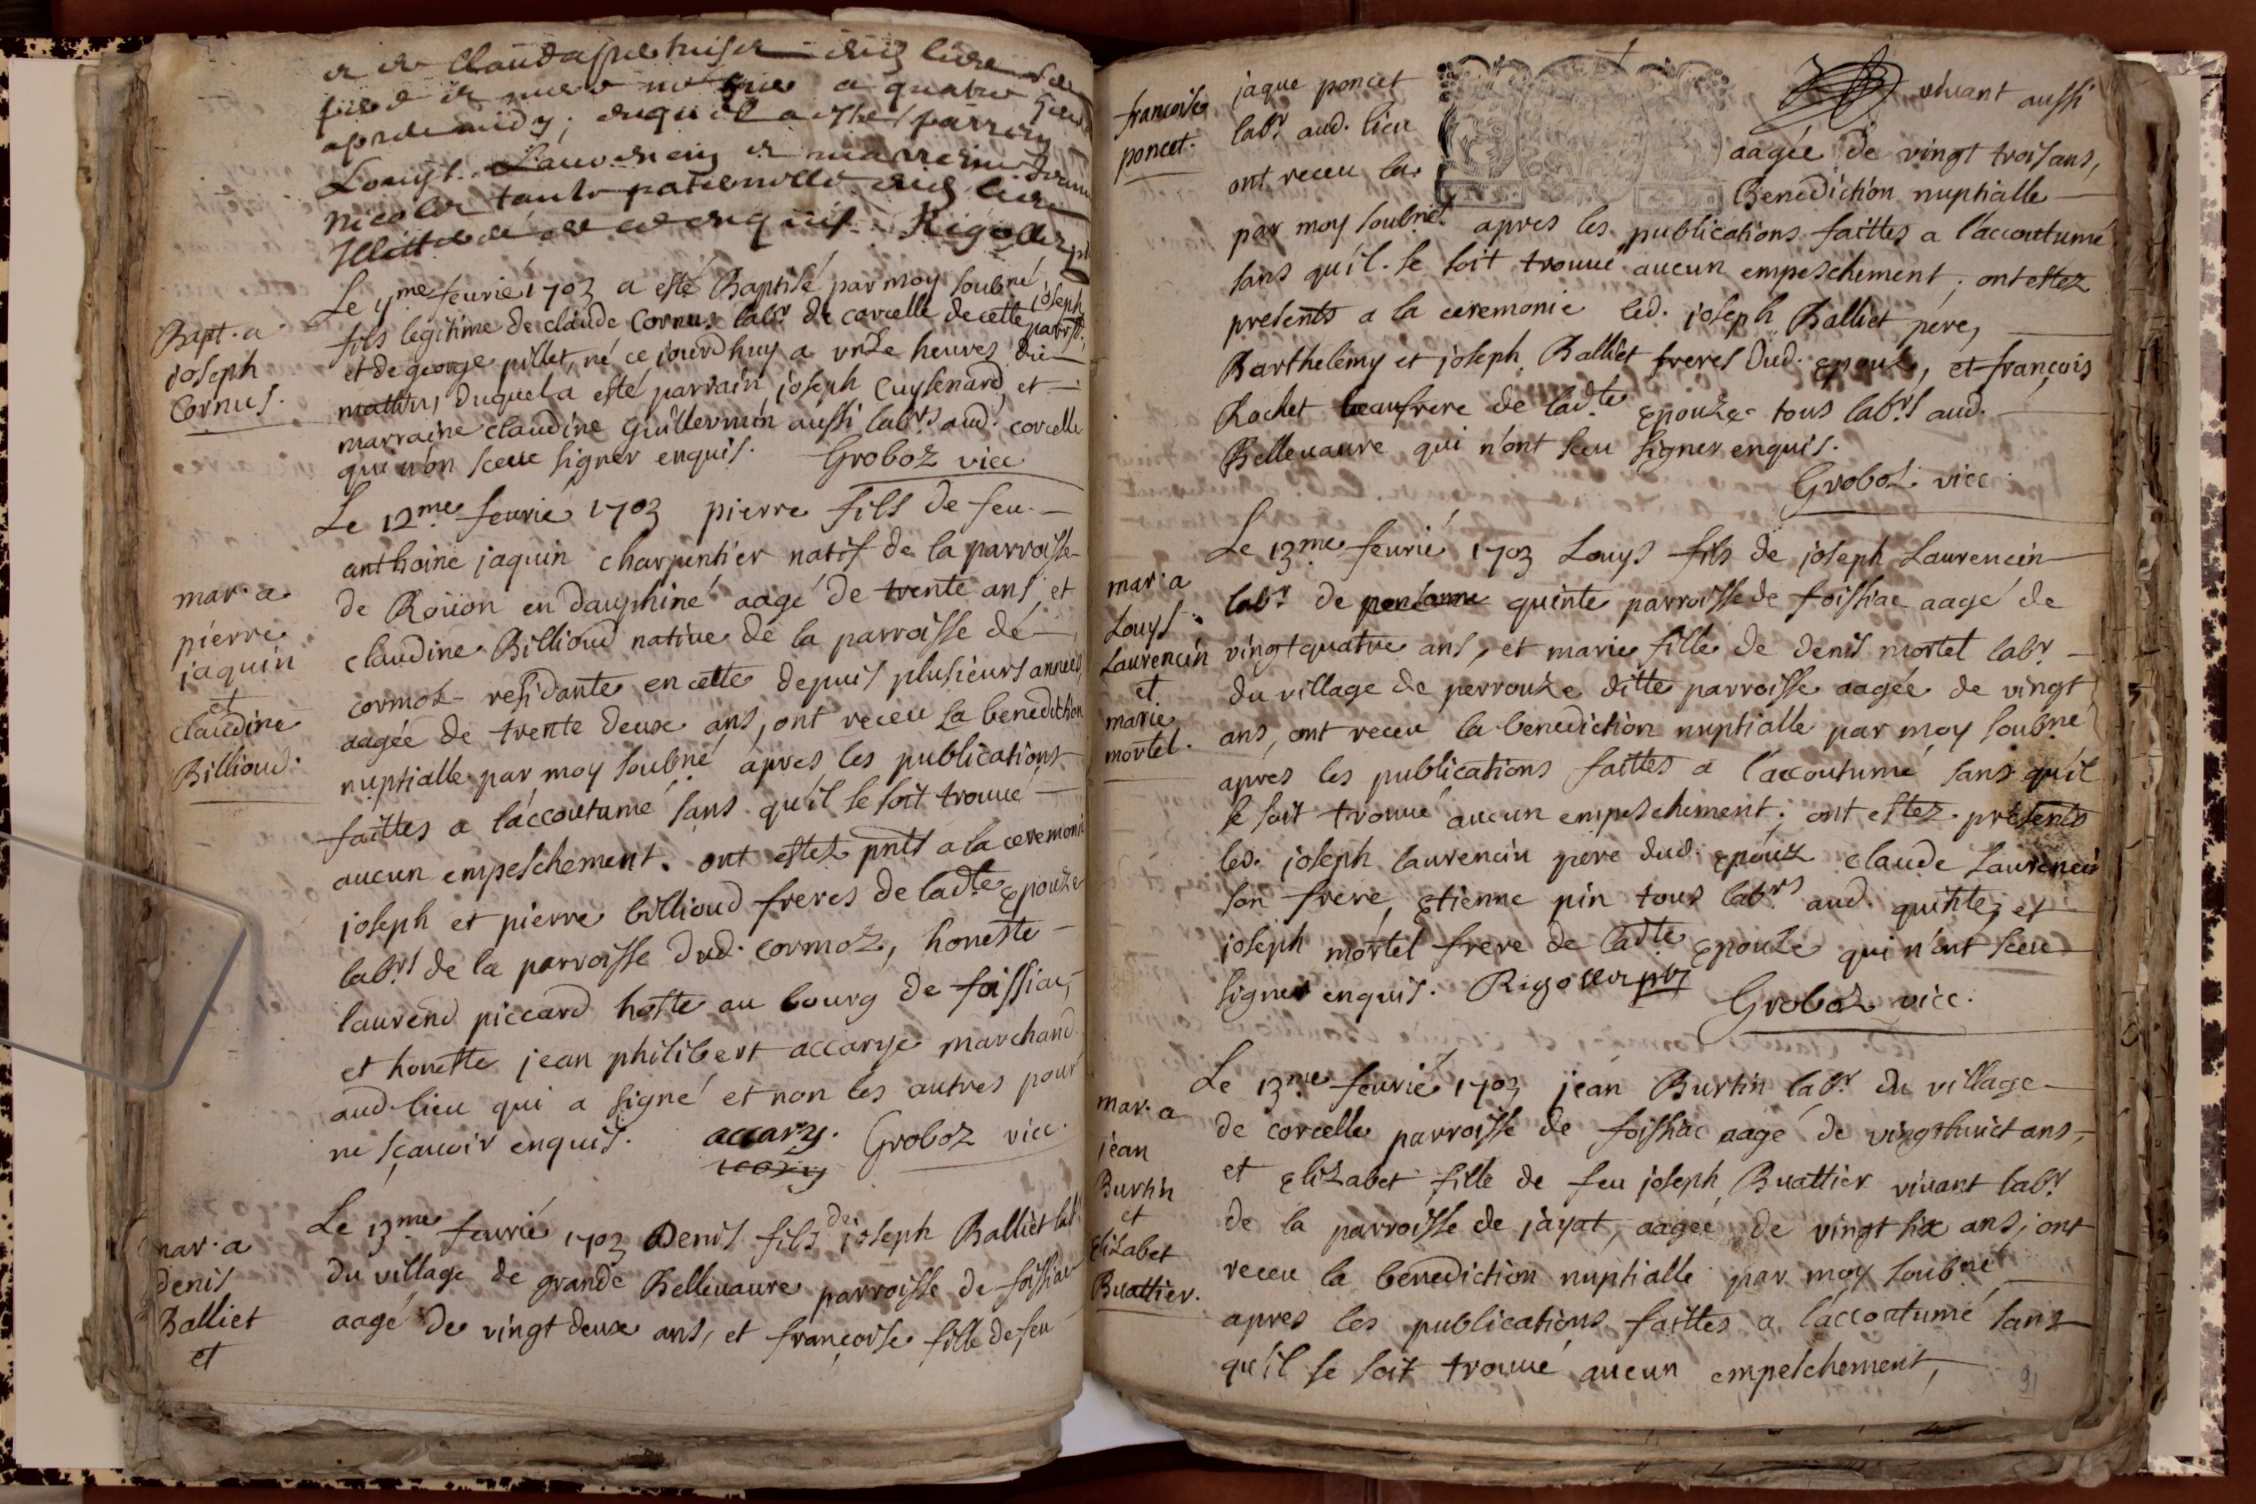 a quatre
apres midy; duquel a esté parrain
Louys Laurencin et marraine
nicole tante paternelle dud. lieu
Illitteré de ce enquis. Rigollet
Bapt. a
joseph
Cornus.
Le feurié 1703 a esté Baptisé par moy soubné joseph
fils legitime de claude Cornus labr. de corcelle de cette parroisse
et de george pillet, né ce jourdhuy a unze heures du
mattin, duquel a esté parrain joseph Cuysenard, et
marraine claudine Guillermin aussi labrs aud. corcelle
qui n'on sceue signer enquis. Groboz vicc
mar. a
pierre
jaquin
et
claudine
Billioud.
Le 12me feurié 1703 pierre fils de feu
anthoine jaquin charpentier natif de la parroisse
de Roüon en dauphiné aagé de trente ans, et
claudine Billioud natiue de la parroisse de
cormoz residante en cette depuis plusieurs années,
aagée de trente deux ans, ont receu la benediction
nuptialle par moy soubné apres les publications
faittes a l'accoutumé sans qu'il se soit trouué
aucun empeschement. ont estez pnts a la ceremonie
joseph et pierre billioud freres de ladte epouze
labrs de la parroisse dud. cormoz, honeste
laurend piccard hoste au bourg de foissiac,
et honeste jean philibert accarye marchand
aud. lieu qui a signé et non les autres pour
ne sçauoir enquis. accary. Groboz vicc.
mar. a
denis
Balliet
et
Le 13me feurié 1703 Denis fils de joseph Balliet labr.
du village de grande Belleuaure parroisse de foissiac
aagé de vingt deux ans, et françoise fille de feu
francoise
poncet.
jaque poncet viuant aussi
labr. aud. lieu aagée de vingt trois ans,
ont receu la Benediction nuptialle
par moy soubné apres les publications faittes a l'accoutumé
sans qu'il se soit trouué aucun empeschement; ont estez
presents a la ceremonie led. joseph Balliet pere,
Barthelemy et joseph Balliet freres dud. epoux, et françois
Rochet beaufrere de ladte epouze tous labrs aud.
Belleuaure qui n'ont sceu signer enquis.
Groboz vicc.
mar. a
Louys
Laurencin
et
marie
mortel.
Le 13me feurié 1703 Louys fils de joseph Laurencin
labr. de quinte parroisse de foissiac aagé de
vingtquatre ans, et marie fille de denis mortel labr.
du village de perrouze ditte parroisse aagée de vingt
ans, ont receu la benediction nuptialle par moy soubné
apres les publications faittes a l'accoutumé sans qu'il
se soit trouué aucun empeschement; ont estez presents
led. joseph laurencin pere dud. epoux claude Laurencin
son frere, etienne pin tous labrs aud. quinte, et
joseph mortel frere de ladte epouze qui n'ont sceu
signer enquis. Rigollet Groboz vicc.
mar. a
jean
Burtin
et
Elizabet
Buattier.
Le 13me feurié 1703 jean Burtin labr. du village
de corcelle parroisse de foissiac aagé de vingthuict ans,
et elizabet fille de feu joseph Buattier viuant labr.
de la parroisse de jayat, aagée de vingt six ans, ont
receu la benediction nuptialle par moy soubné
apres les publications faittes a l'accoutumé sans
qu'il se soit trouué aucun empeschement,